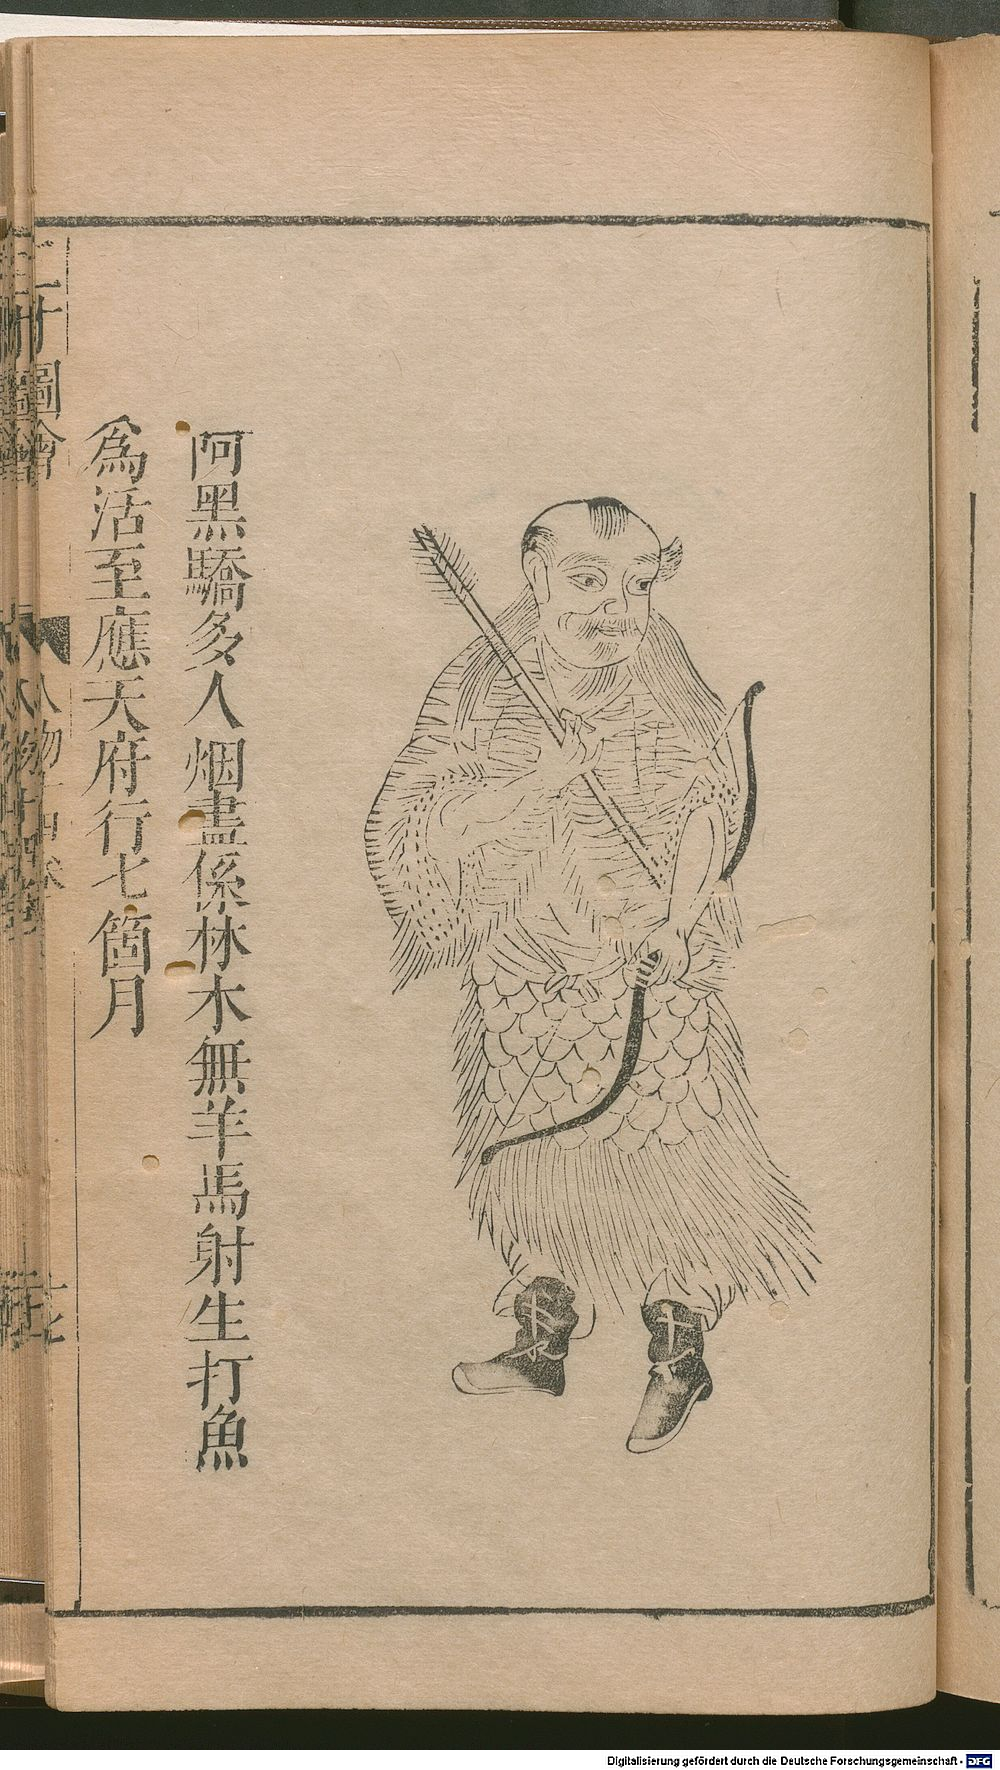 阿黑驕多人烟盡係林木無羊馬射生打魚
為活至應天府行七箇月
圖會
人物
Digitalisierung gefördert durch die Deutsche Forschungsgemeinschaft - DFG